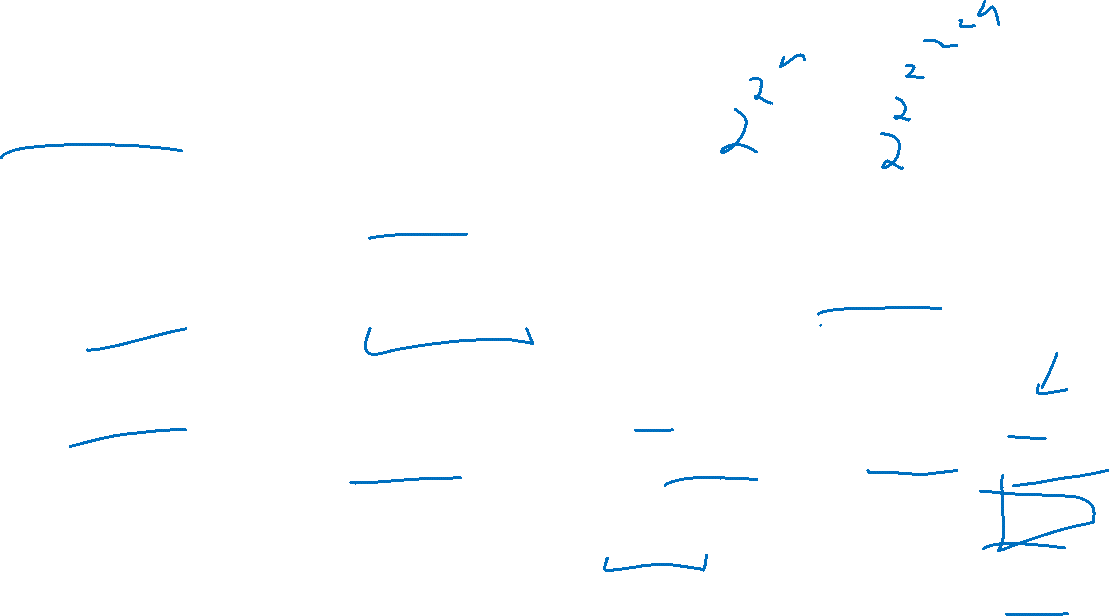 2^{2^n} 2^{2^{2^{2^{2^n}}}}